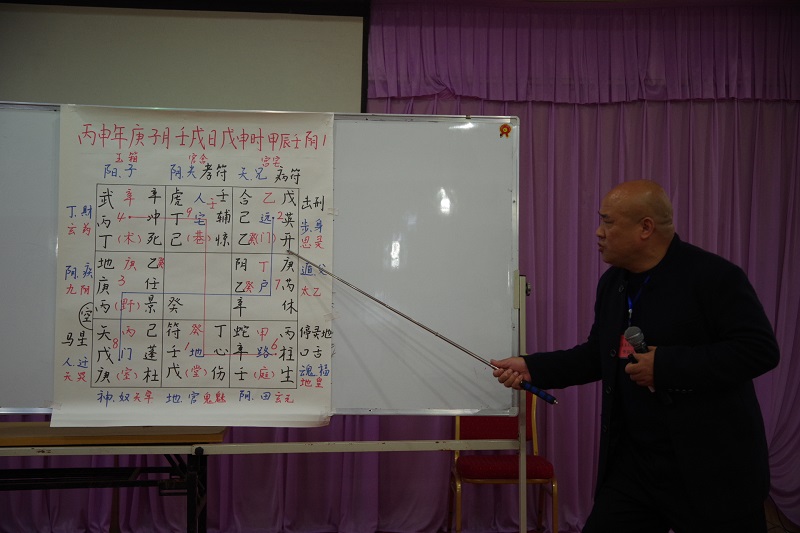 丙申年庚子月壬戌日戊申时甲辰壬阴1
玉箱 官舍 宫宅
阳.子 阴.夫孝符 天.兄 病符
武 辛 辛 虎 人 壬 合 乙 戊
丙 4 冲 丁 9 宅 辅 己 远 2 英
丁 (木) 死 己 (巷) 惊 乙 (门) 开
丁.财
玄
步.身
地 庚 乙 阴 丁 庚
庚 3 任 乙 户 7 芮
丙 (野) 景 癸 辛 休
阴.疾
九阴
太乙
空
天 丙 己 符 癸 丁 蛇 甲 丙
戊 8 门 蓬 壬 1 地 心 辛 路 6 柱
庚 (宝) 杜 戊 (堂) 伤 壬 (庭) 生
马星
人.迁
口舌
魂.福
地皇
神.奴 地.官鬼魅 阴.田